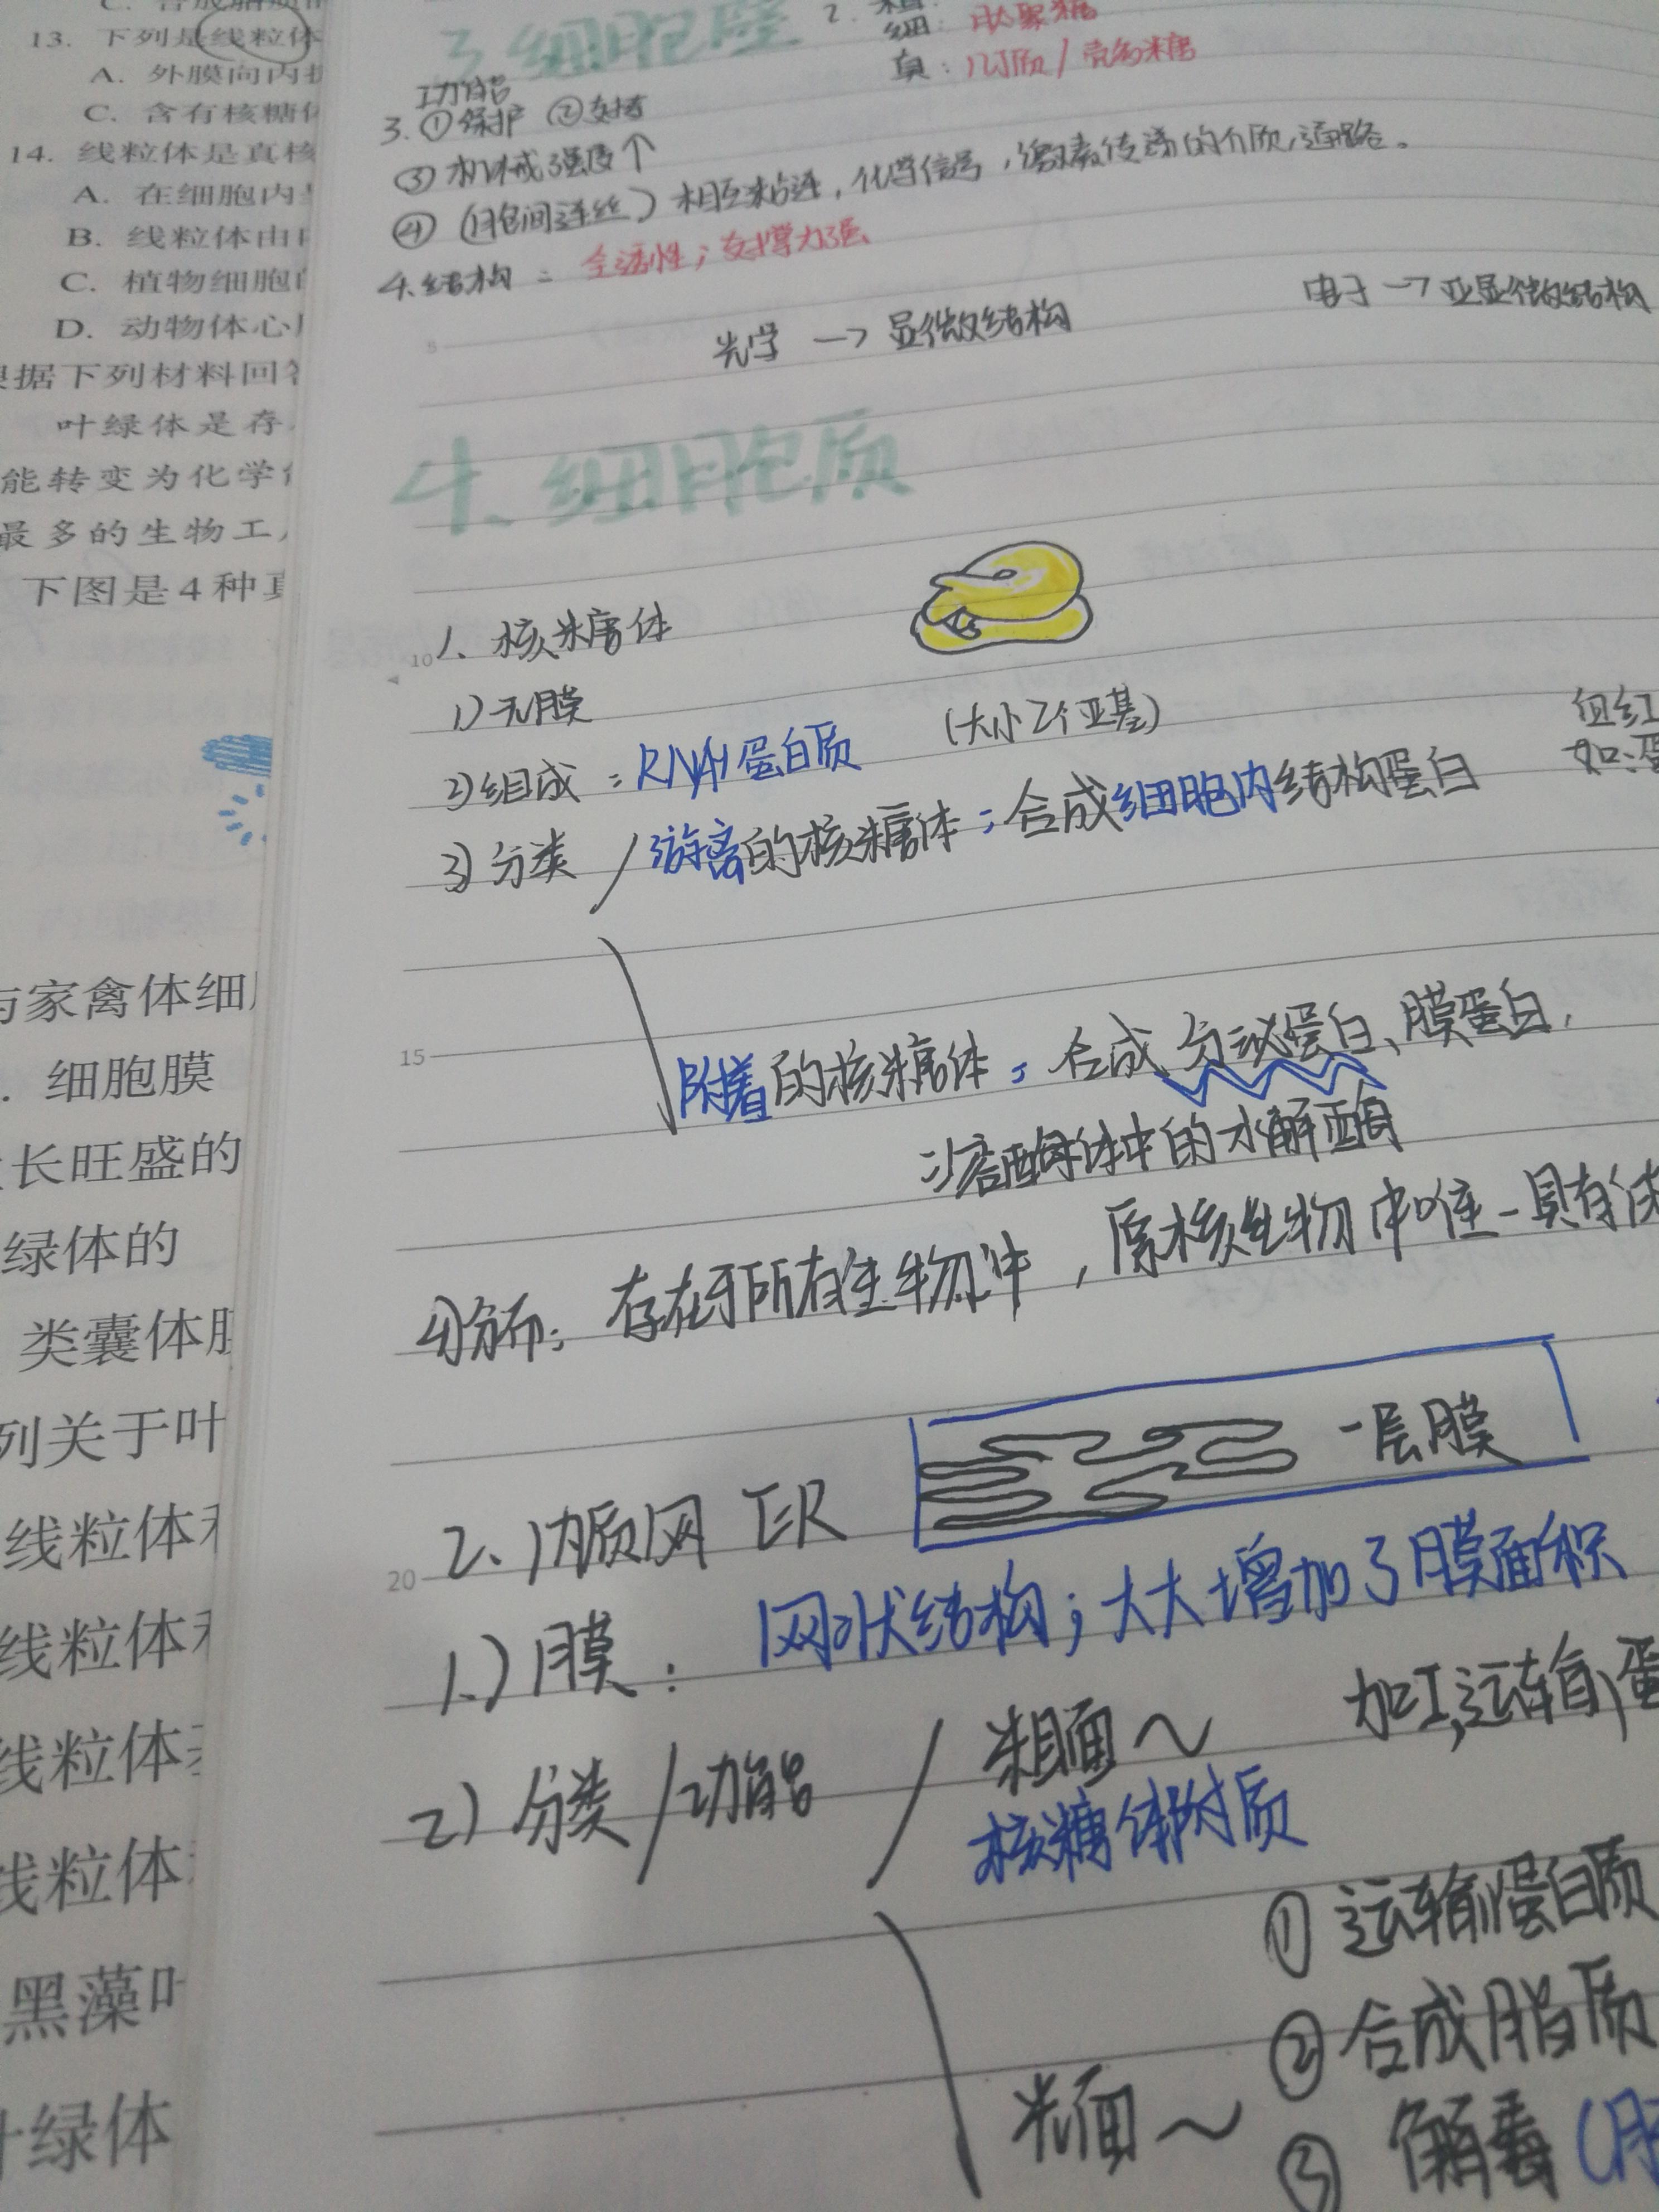 13. 下列是线粒体
A. 外膜向内
C. 含有核糖体
14. 线粒体是真核
A. 在细胞内
B. 线粒体由
C. 植物细胞
D. 动物体心
根据下列材料回答
叶绿体是存
能转变为化学
最多的生物工
下图是4种真
与家禽体细
. 细胞膜
长旺盛的
绿体的
类囊体
列关于叶
线粒体和
线粒体和
线粒体
线粒体
黑藻叶
叶绿体
3.细胞壁
2.
细: 肽聚糖
真: 几丁质/壳多糖
功能
3. ①保护 ②支持
③机械强度↑
④(胞间连丝) 相互粘连,化学信号,激素传递的介质,通路。
4.结构: 全透性;支撑力强
光学 → 显微结构
电子 → 亚显微结构
4.细胞质
10
1、核糖体
1)无膜
(大小2个亚基)
2)组成: RNA+蛋白质
血红
如:蛋
3)分类 / 游离的核糖体: 合成细胞内结构蛋白
15
附着的核糖体: 合成分泌蛋白、膜蛋白,
溶酶体中的水解酶
4)分布: 存在于所有生物中,原核生物中唯一具有
2、内质网 ER
一层膜
20
1.)膜: 网状结构;大大增加了膜面积
2)分类/功能 / 粗面~ 加工,运输蛋
核糖体附质
①运输蛋白质
②合成脂质
光面~
③解毒(肝